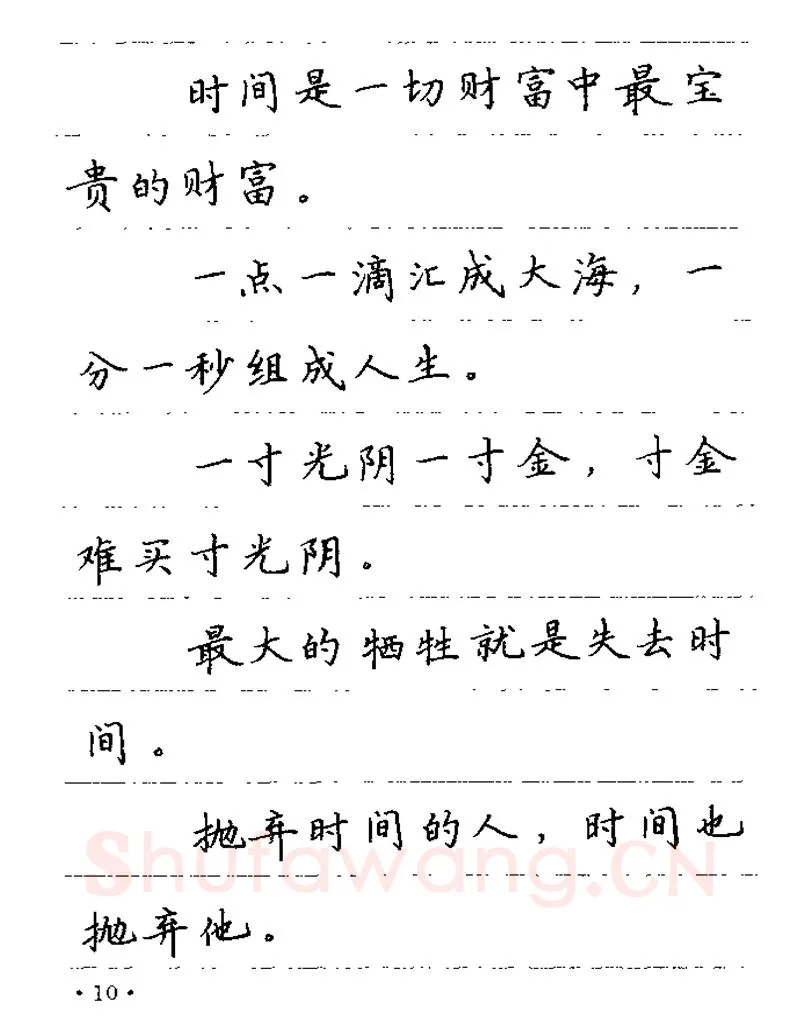 时间是一切财富中最宝
贵的财富。
一点一滴汇成大海，一
分一秒组成人生。
一寸光阴一寸金，寸金
难买寸光阴。
最大的牺牲就是失去时
间。
抛弃时间的人，时间也
抛弃他。
Shufawang.CN
·10·